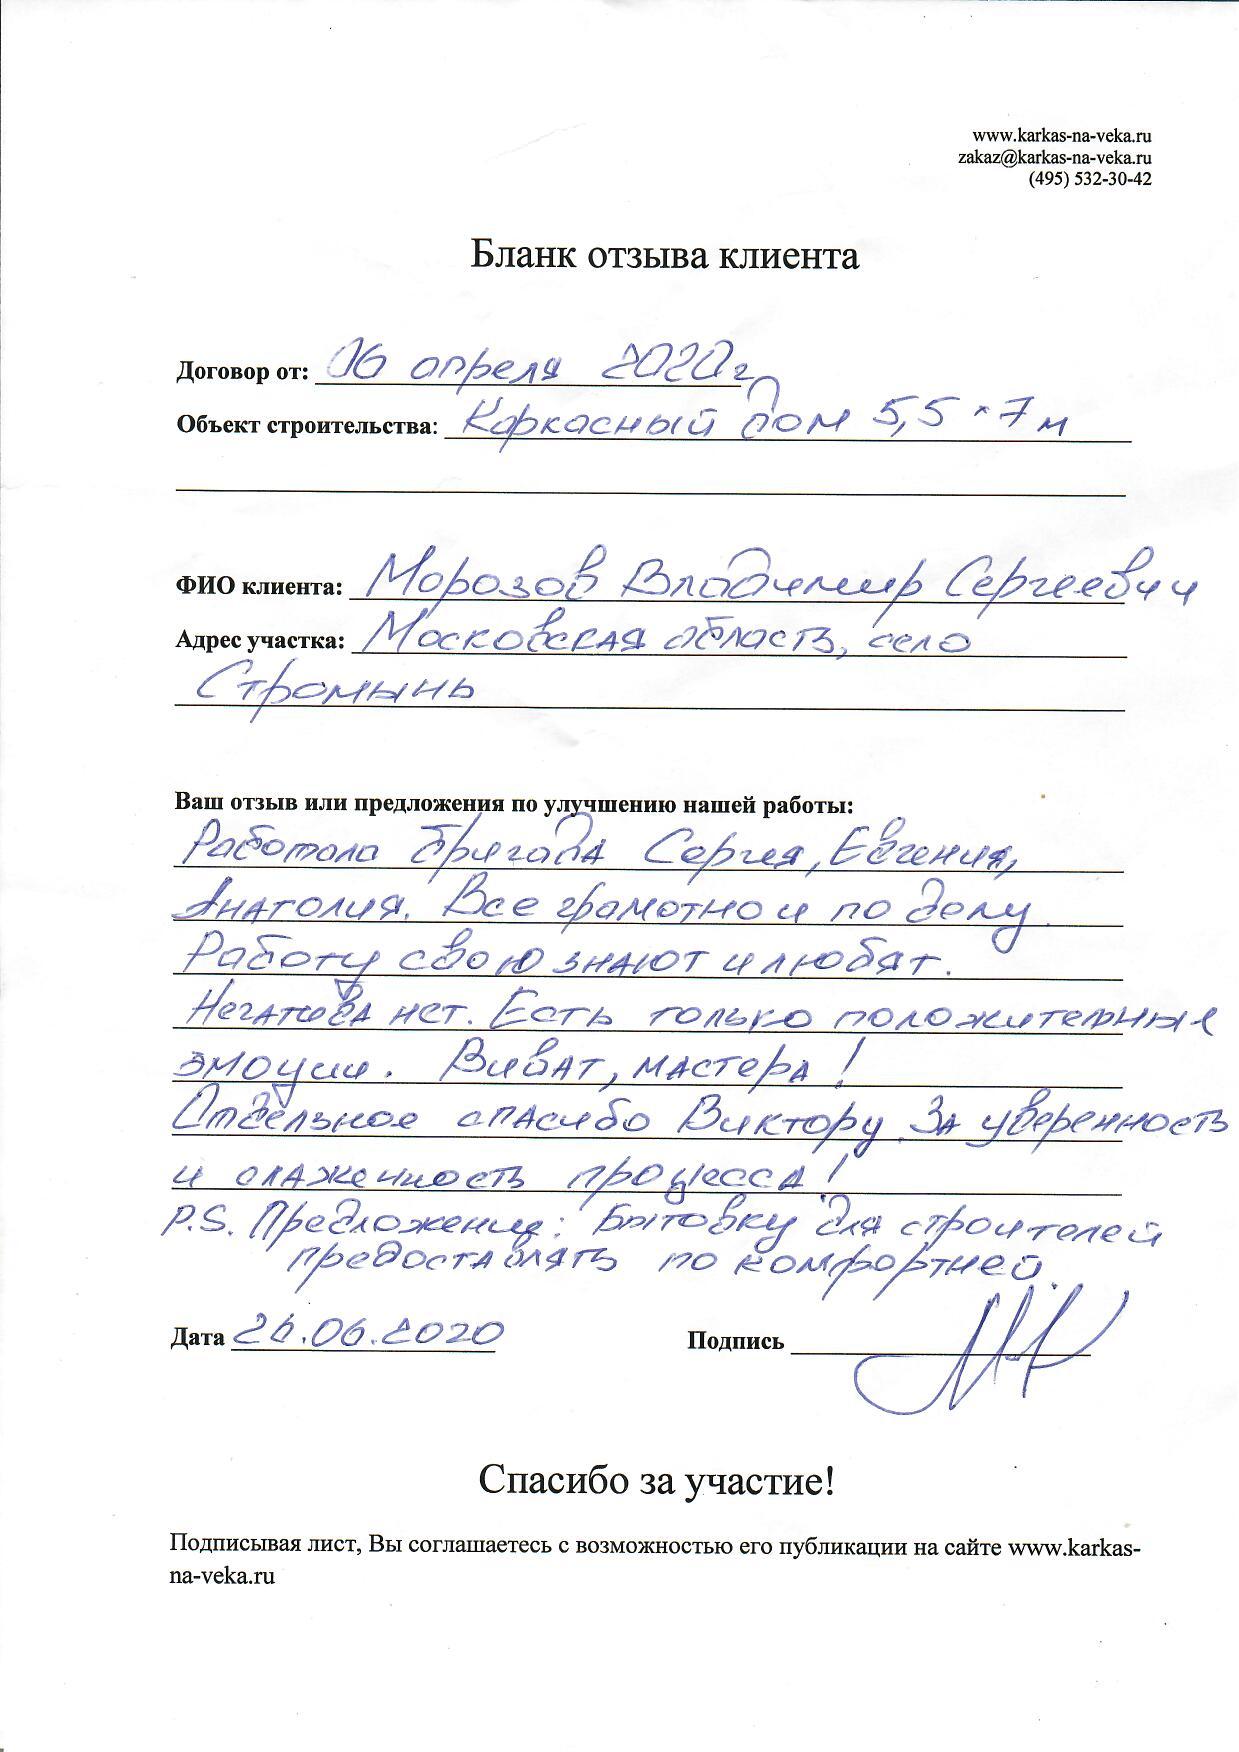 www.karkas-na-veka.ru
zakaz@karkas-na-veka.ru
(495) 532-30-42
Бланк отзыва клиента
Договор от: 06 апреля 2020г
Объект строительства: Каркасный дом 5,5 × 7 м
ФИО клиента: Морозов Владимир Сергеевич
Адрес участка: Московская область, село
Стромынь
Ваш отзыв или предложения по улучшению нашей работы:
Работала бригада Сергея, Евгения,
Анатолия. Все грамотно и по делу.
Работу свою знают и любят.
Негатива нет. Есть только положительные
эмоции. Виват, мастера!
Отдельное спасибо Виктору за уверенность
и слаженность процесса!
P.S. Предложение: Бытовку для строителей
предоставлять по комфортней.
Дата 26.06.2020 Подпись
Спасибо за участие!
Подписывая лист, Вы соглашаетесь с возможностью его публикации на сайте www.karkas-
na-veka.ru